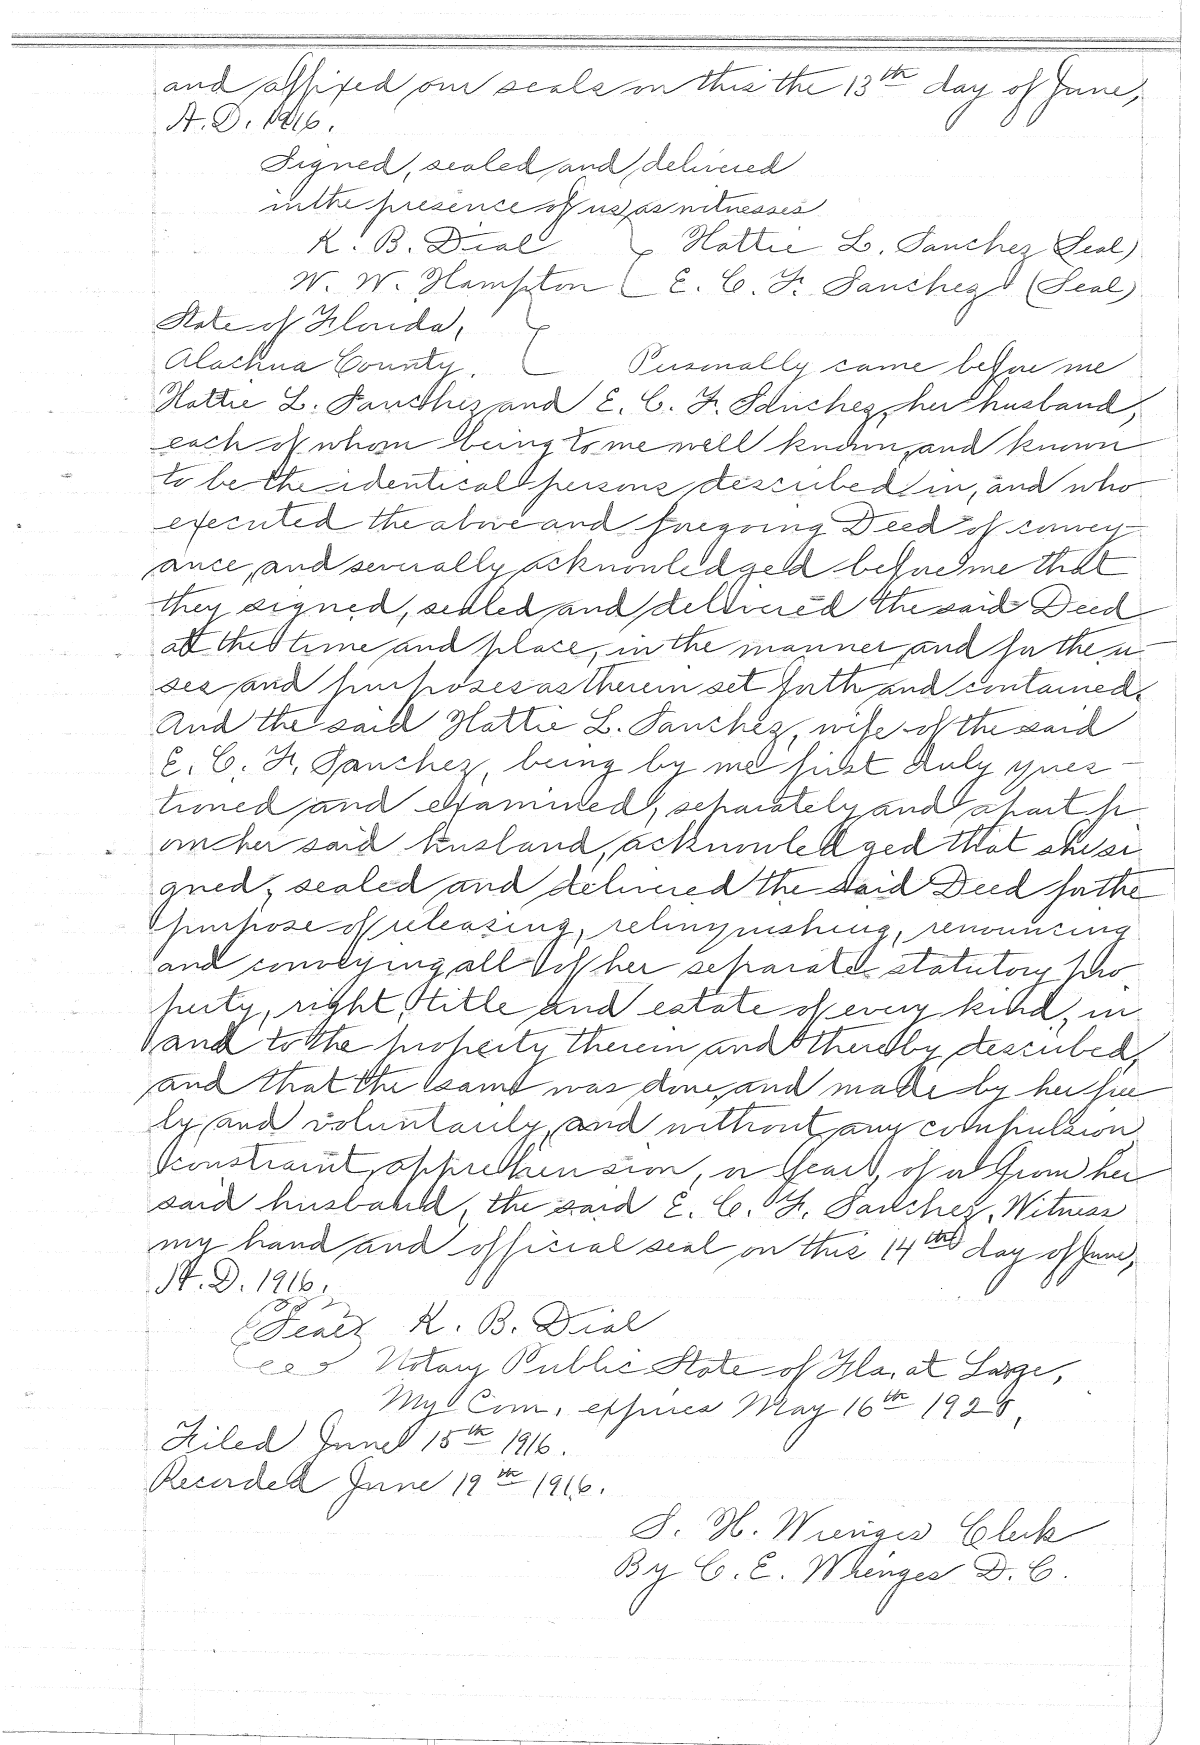 and affixed our seals on this the 13th day of June,
A. D. 1916.
Signed, sealed and delivered
in the presence of us as witnesses
K. B. Dial } Hattie L. Sanchez (Seal)
W. W. Hampton } E. C. F. Sanchez (Seal)
State of Florida, }
Alachua County. } Personally came before me
Hattie L. Sanchez and E. C. F. Sanchez, her husband,
each of whom being to me well known, and known
to be the identical persons described in, and who
executed the above and foregoing Deed of convey-
ance, and severally acknowledged before me that
they signed, sealed and delivered the said Deed
at the time and place, in the manner, and for the u-
ses and purposes as therein set forth and contained.
And the said Hattie L. Sanchez, wife of the said
E. C. F. Sanchez, being by me first duly ques-
tioned and examined, separately and apart fr
om her said husband, acknowledged that she si
gned, sealed and delivered the said Deed for the
purpose of releasing, relinquishing, renouncing
and conveying all of her separate statutory pro
perty, right, title and estate of every kind, in
and to the property therein and thereby described,
and that the same was done, and made by her free
ly and voluntarily, and without any compulsion
constraint, apprehension, or fear, of or from her
said husband, the said E. C. F. Sanchez. Witness
my hand and official seal on this 14th day of June,
A. D. 1916.
(Seal) K. B. Dial
Notary Public State of Fla. at Large,
My Com. expires May 16th
Filed June 15th 1916.
Recorded June 19th 1916.
S. H. Wienges Clerk
By C. E. Wienges D. C.